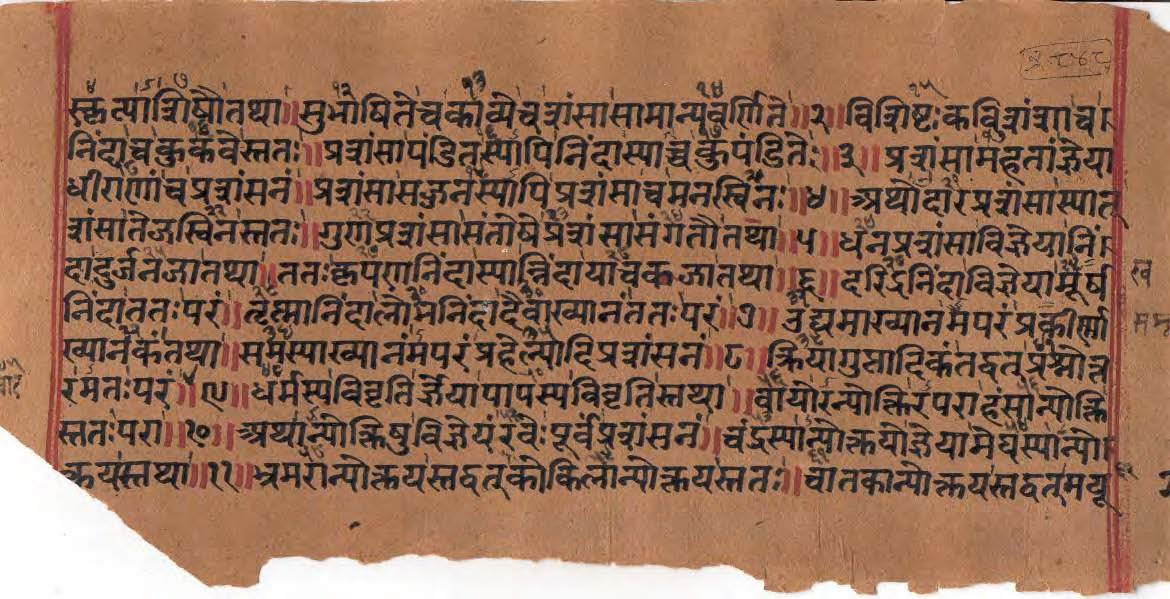 स्कृत्याशिषौतथा॥सुभाषितेचकाव्येचशंसासामान्यवर्णिते॥२॥विशिष्टःकविशंशाच॥
निंदाचकुकवेस्ततः॥प्रशंसापंडितस्यापिनिंदास्याच्चकुपंडिते॥३॥प्रशंसामहतांज्ञेया
धीराणांचप्रशंसनं॥प्रशंसासज्जनस्यापिप्रशंसाचमनस्विनः॥४॥अथौदारप्रशंसास्यात्
शंसातेजस्विनस्ततः॥गुणप्रशंसासंतोषेप्रशंसासंगतौतथा॥५॥धनप्रशंसाविज्ञेयानिं।
दादुर्जनजातथा॥ततःकृपणनिंदास्यान्निंदायाचकजातथा॥६॥दरिद्रनिंदाविज्ञेयामूर्ष
निंदाततःपरं॥तृष्मानिंदालोभनिंदादैवाख्यानंततःपरं॥७॥उद्यमाख्यानमपरंप्रकीर्णा
ख्यानकंतथा॥समस्याख्यानमपरंप्रहेल्यादिप्रशंसनं॥८॥क्रियागुप्तादिकंतद्वत्प्रश्नोत्त
रमतःपरं॥९॥धर्मस्यविवृतिर्ज्ञेयापापस्यविवृतिस्तथा॥वायोरन्योक्तिरपराहंसान्योक्ति
स्ततःपरा॥१०॥अथान्योक्तिषुविज्ञेयंरवेःपूर्वप्रशंसनं॥चंद्रस्यान्योक्तयोज्ञेयामेघस्यान्यो।
क्तयस्तथा॥११॥भ्रमरान्योक्तयस्तद्वत्कोकिलान्योक्तयस्ततः॥चातकान्योक्तयस्तद्वत्मयू